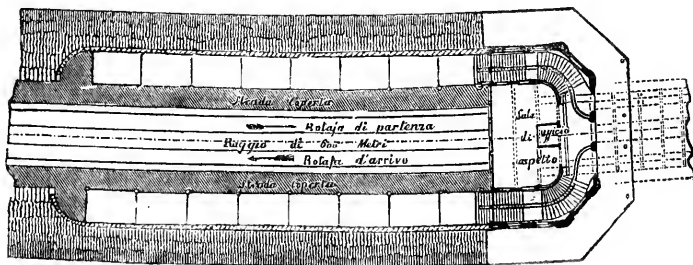 Strada Coperta
Rotaja di partenza
Raggio di 600 Metri
Rotaja d'arrivo
Strada Coperta
Sala
di
aspetto
Ufficio